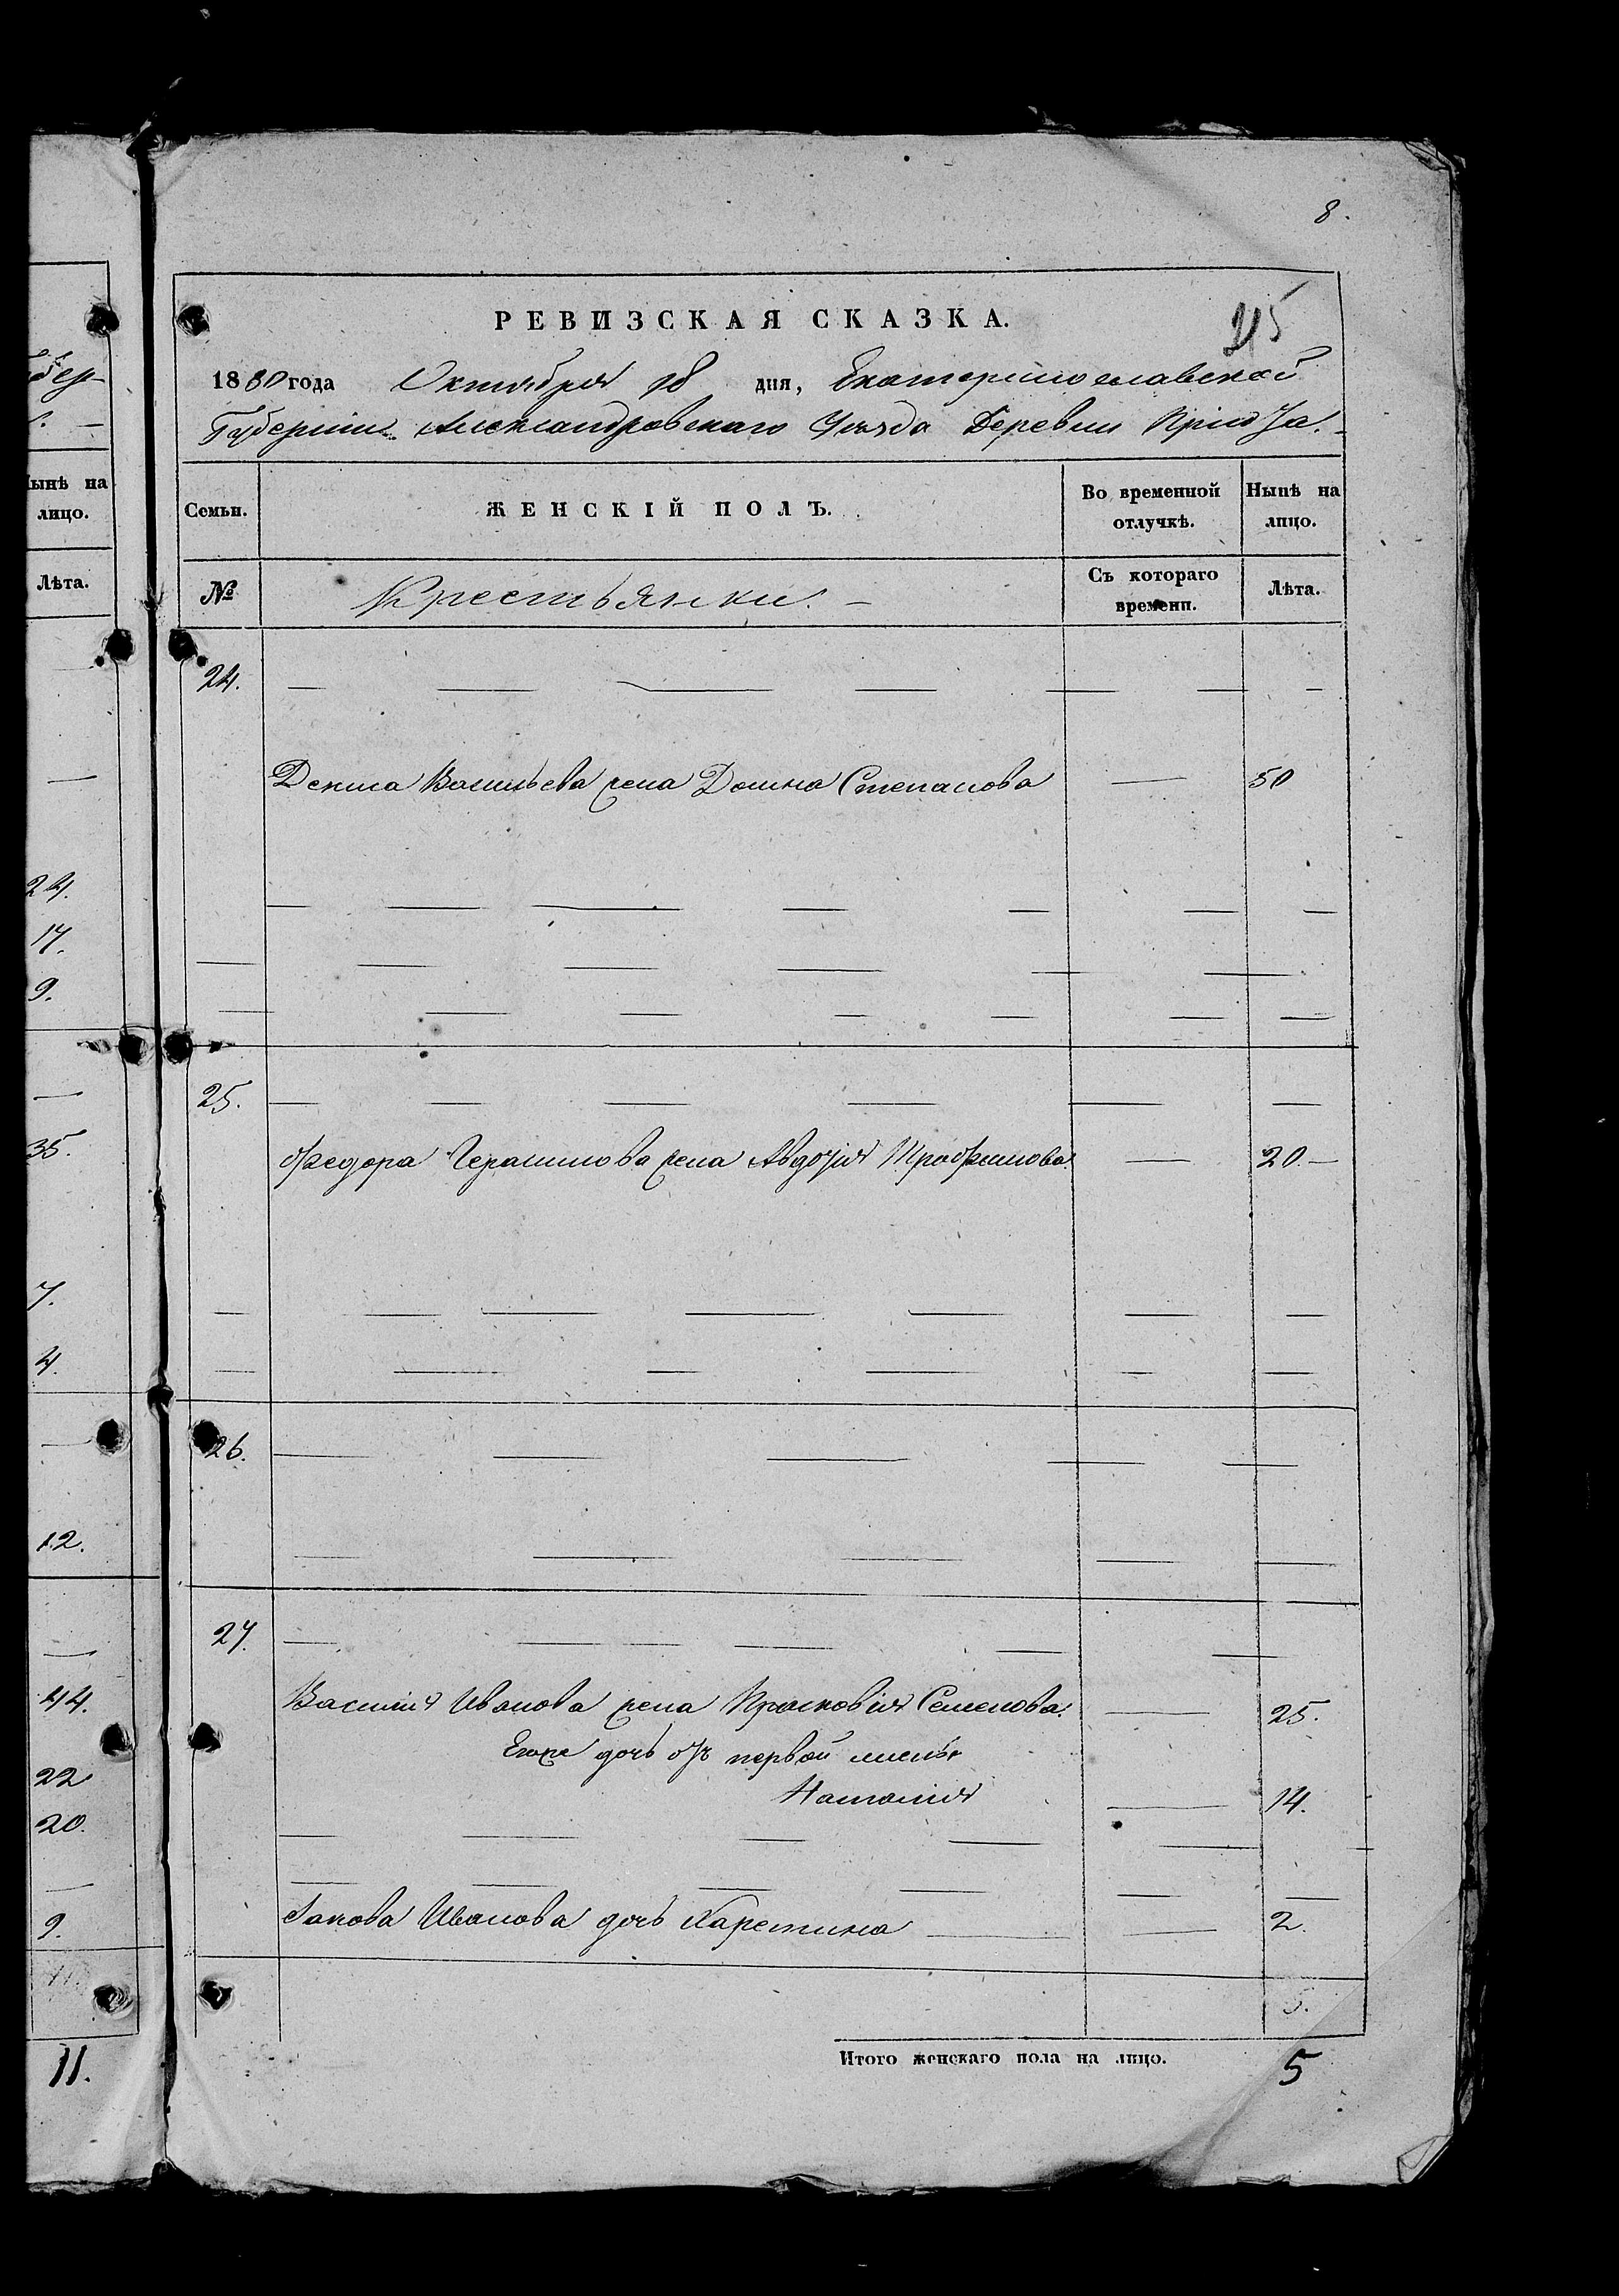 8.
РЕВИЗСКАЯ СКАЗКА.
1850 года Октября 18 дня, Екатеринославской
Губерніи Александровскаго Уѣзда Деревни
Семьи. ЖЕНСКІЙ ПОЛЪ. Во временной отлучкѣ. Нынѣ на лицо.
№ Крестьянки. — Съ котораго времени. Лѣта.
24. — — — — — — —
Дениса Васильева жена Домна Степанова — 50
— — — — — — —
— — — — — —
— — — — — — —
25. — — — — — —
Федора Герасимова жена Авдотія Трофимова — 20. —
— — — — — — —
— — — — — —
26. — — — — —
— — — — —
27. — — — — — —
Василія Иванова жена Прасковія Семенова. — 25.
Егоже дочь отъ первой жены
Наталія — 14.
— — — — —
— — — — — —
Якова Иванова дочь — — 2.
5.
Итого женскаго пола на лицо. 5
ынѣ на
лицо.
Лѣта.
—
—
24.
17.
9.
—
35.
7.
4.
—
12.
—
44.
22
20.
—
9.
11.
11.